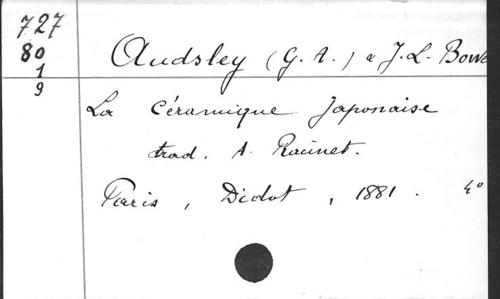 727
80
1
9
Audsley (G. A.) & J. L. Bowe
La Céramique Japonaise
trad. A. Racinet.
Paris, Didot, 1881. 4°